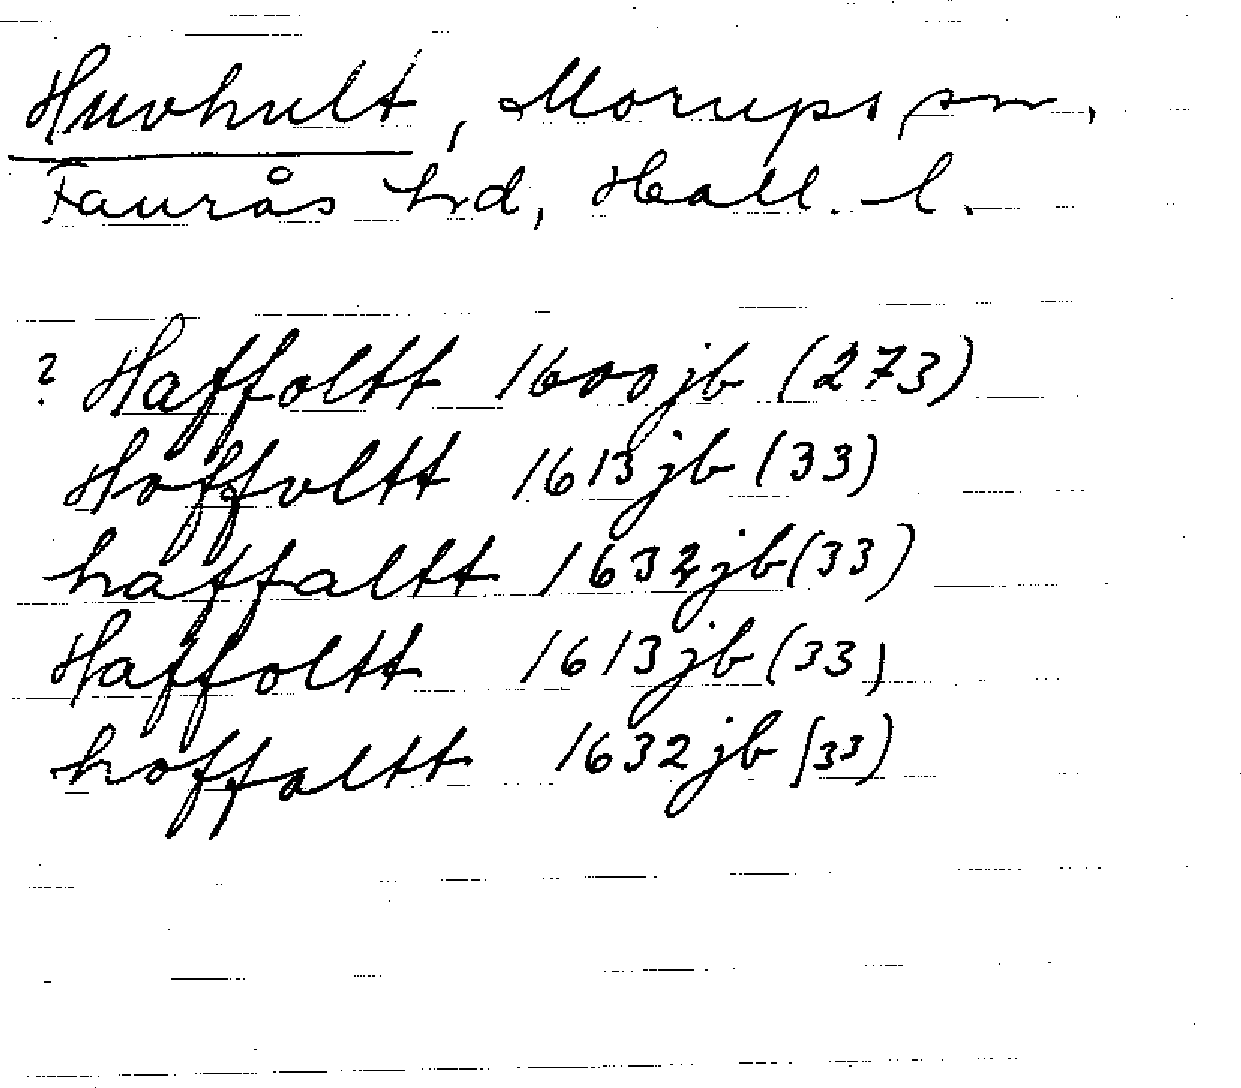 Huvhult, Morups sn.
Faurås hrd, Hall. l.
? Haffoltt 1600 jb (273)
Hoffoltt 1613 jb (33)
haffaltt 1632 jb (33)
Haffoltt 1613 jb (33)
hoffaltt 1632 jb (33)